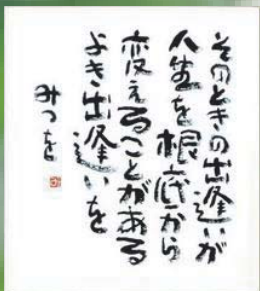 そのときの出逢いが
人生を根底から
変えることがある
よき出逢いを
みつを